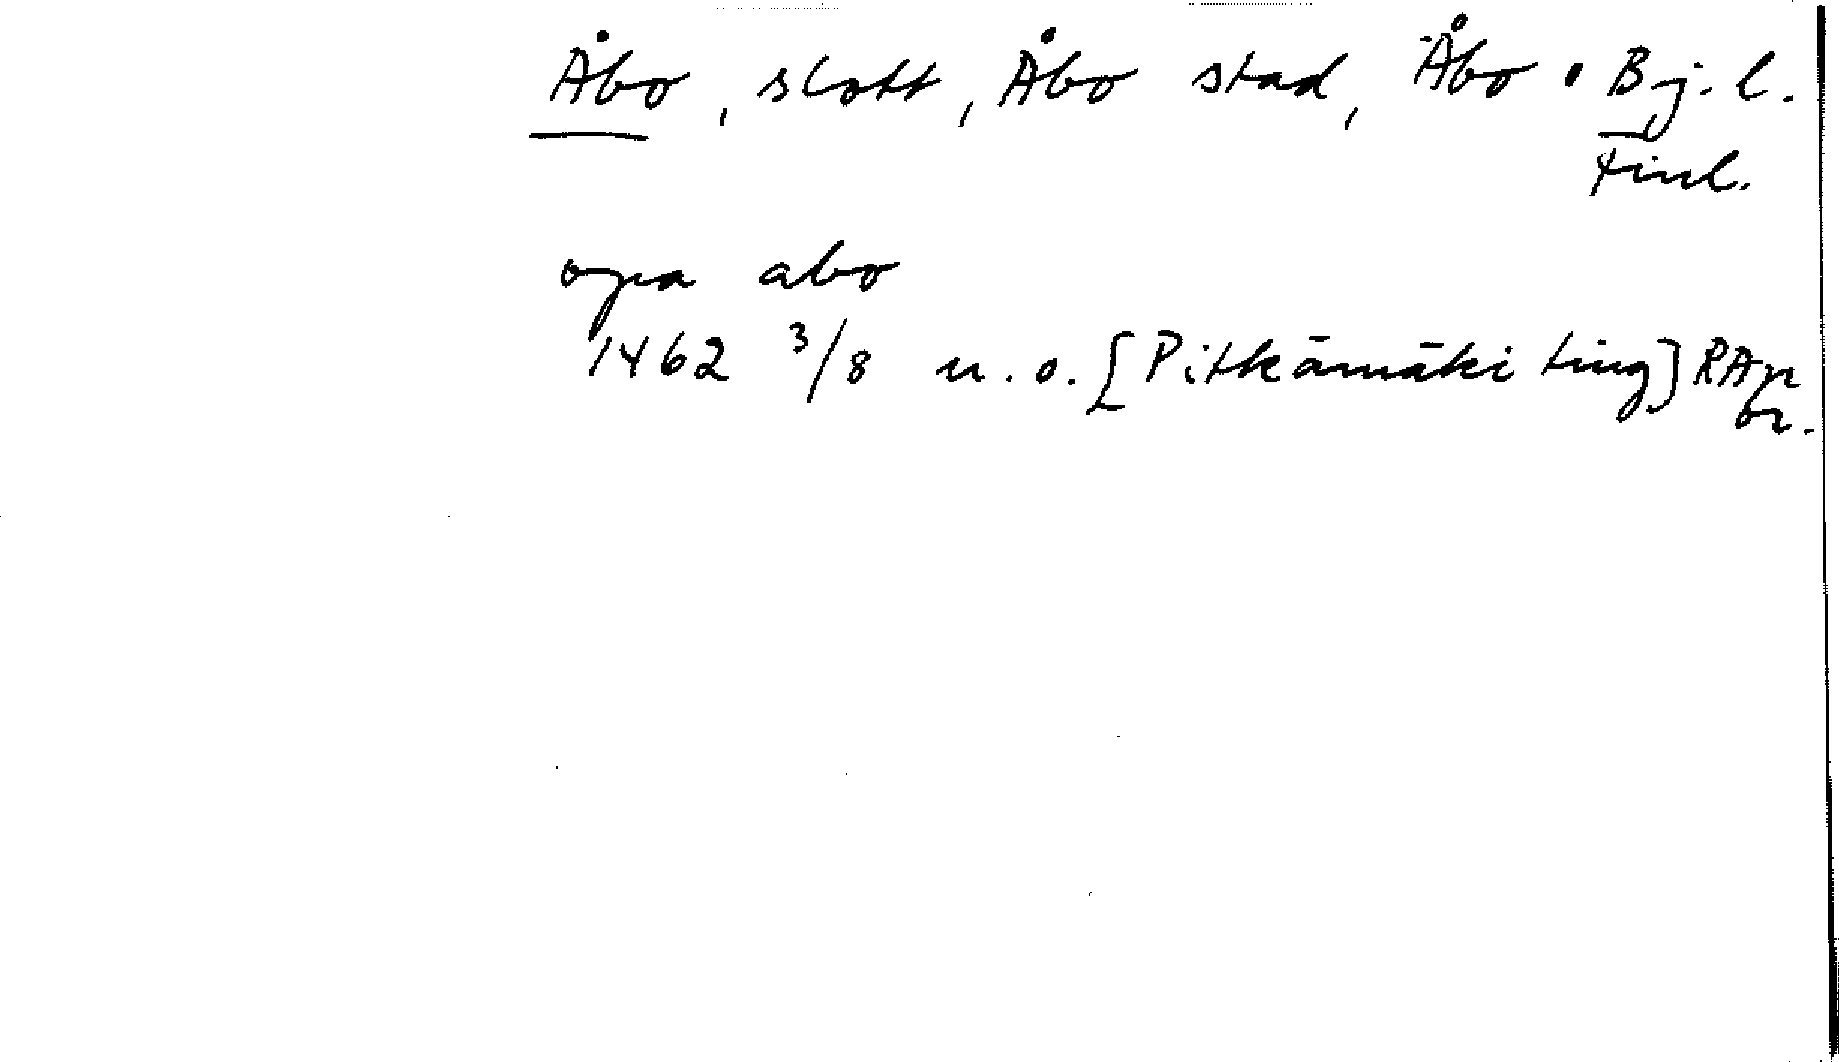 Åbo, slott, Åbo stad, Åbo o Bj. l.
Finl.
opa abo
1462 3/8 u. o. [Pitkämäki ting] RAp
br.